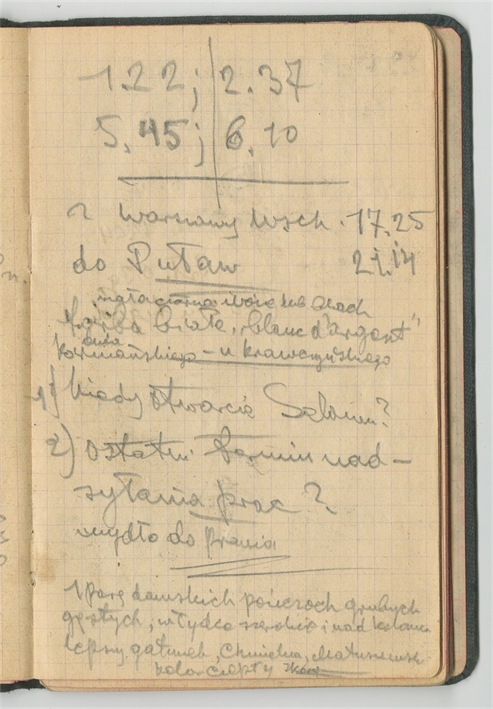 1.22; 2.37
5.45; 6.10
z Warszawy Wsch. 17.25
do Puław 21.14
mała czarna
farba biała "blanc d'argent"
duża
Karmańskiego – u Krawczyńskiego
1) kiedy otwarcie Salonu?
2) ostatni termin nad-
syłania prac?
mydło do prania
1 parę damskich pończoch grubych
gęstych, w łydce szerokie i nad kolana
lepszy gatunek, Chmielna,
kolor ciepły